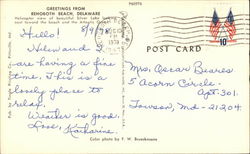 GREETINGS FROM
REHOBOTH BEACH, DELAWARE
Helicopter view of beautiful Silver Lake looking
east toward the beach and the Atlantic Ocean
8/9/78
Hello!
Helen and I
are having a fine
time. This is a
lovely place to
relax.
Weather is good.
Love, Katharine
POST CARD
Mrs. Oscar Beares
5 Acorn Circle
Apt. 301
Towson, Md - 21204
Color photo by F. W. Brueckmann